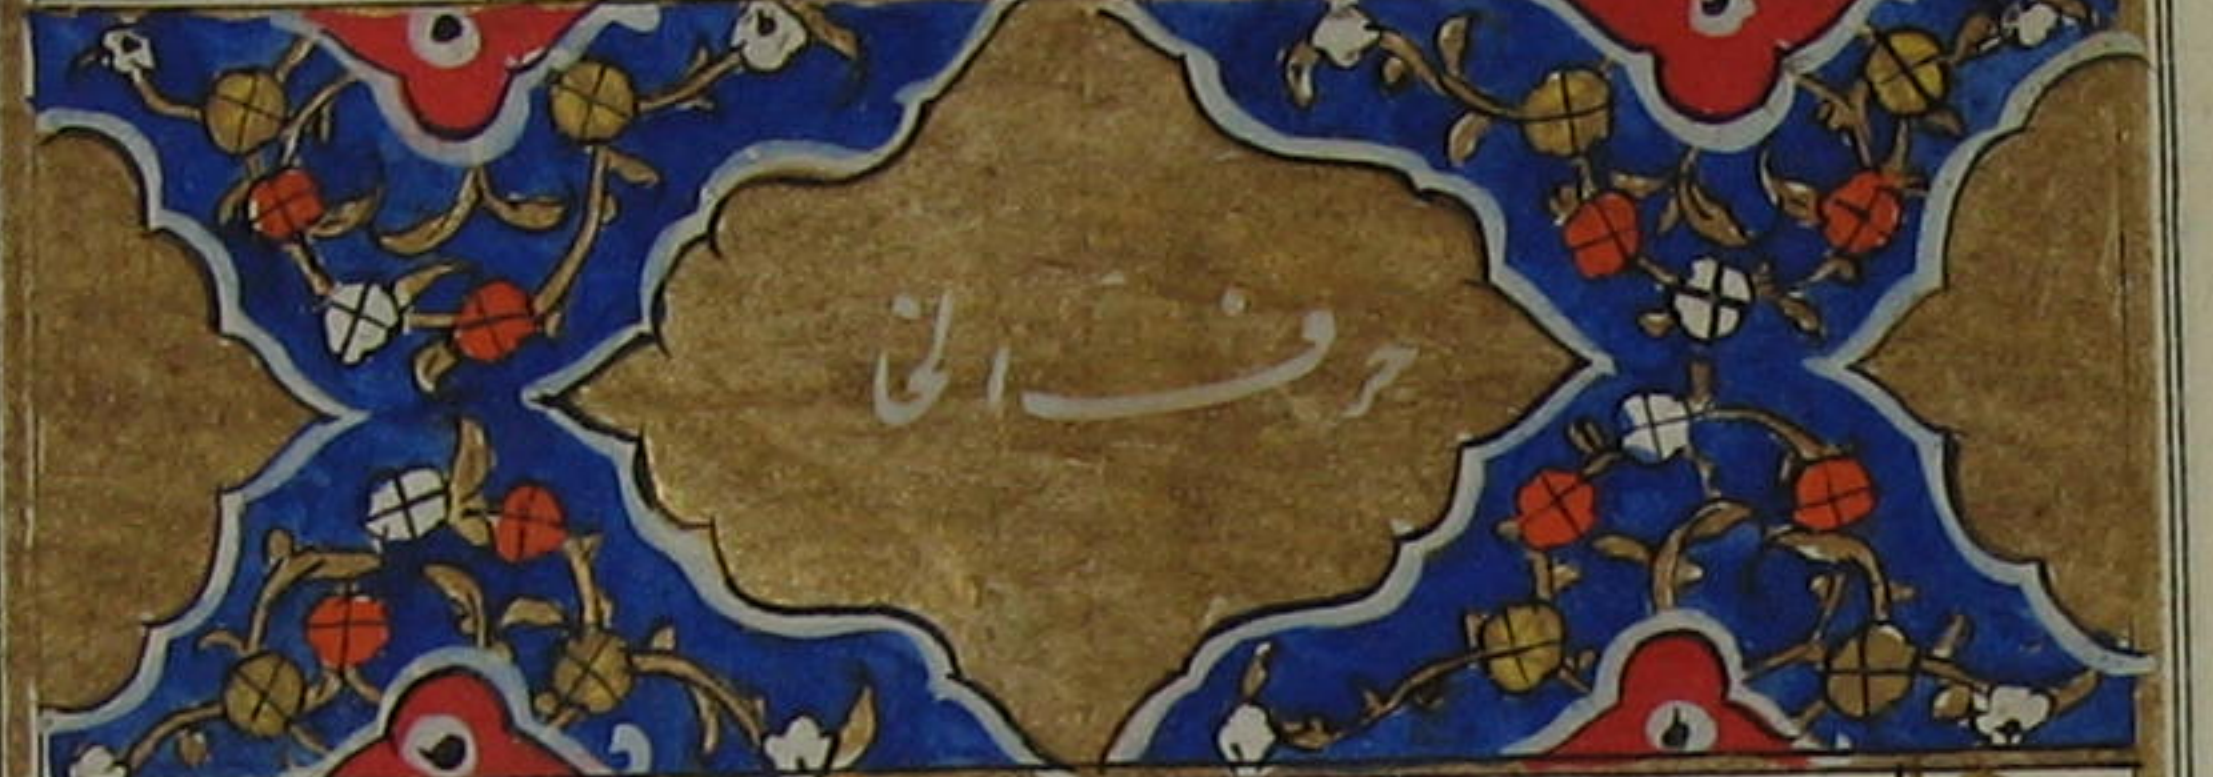 حرف الخا